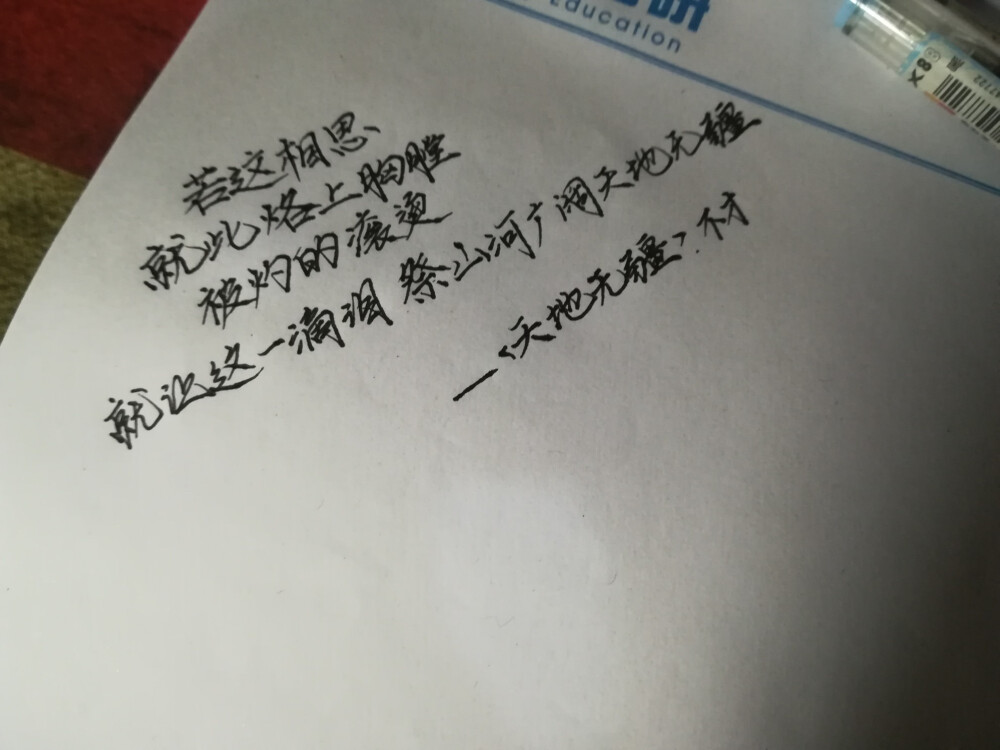 研
Education
X8
若这相思
就此烙上胸膛
被灼的滚烫
就让这一滴泪 祭山河广阔天地无疆
—《天地无疆》不才